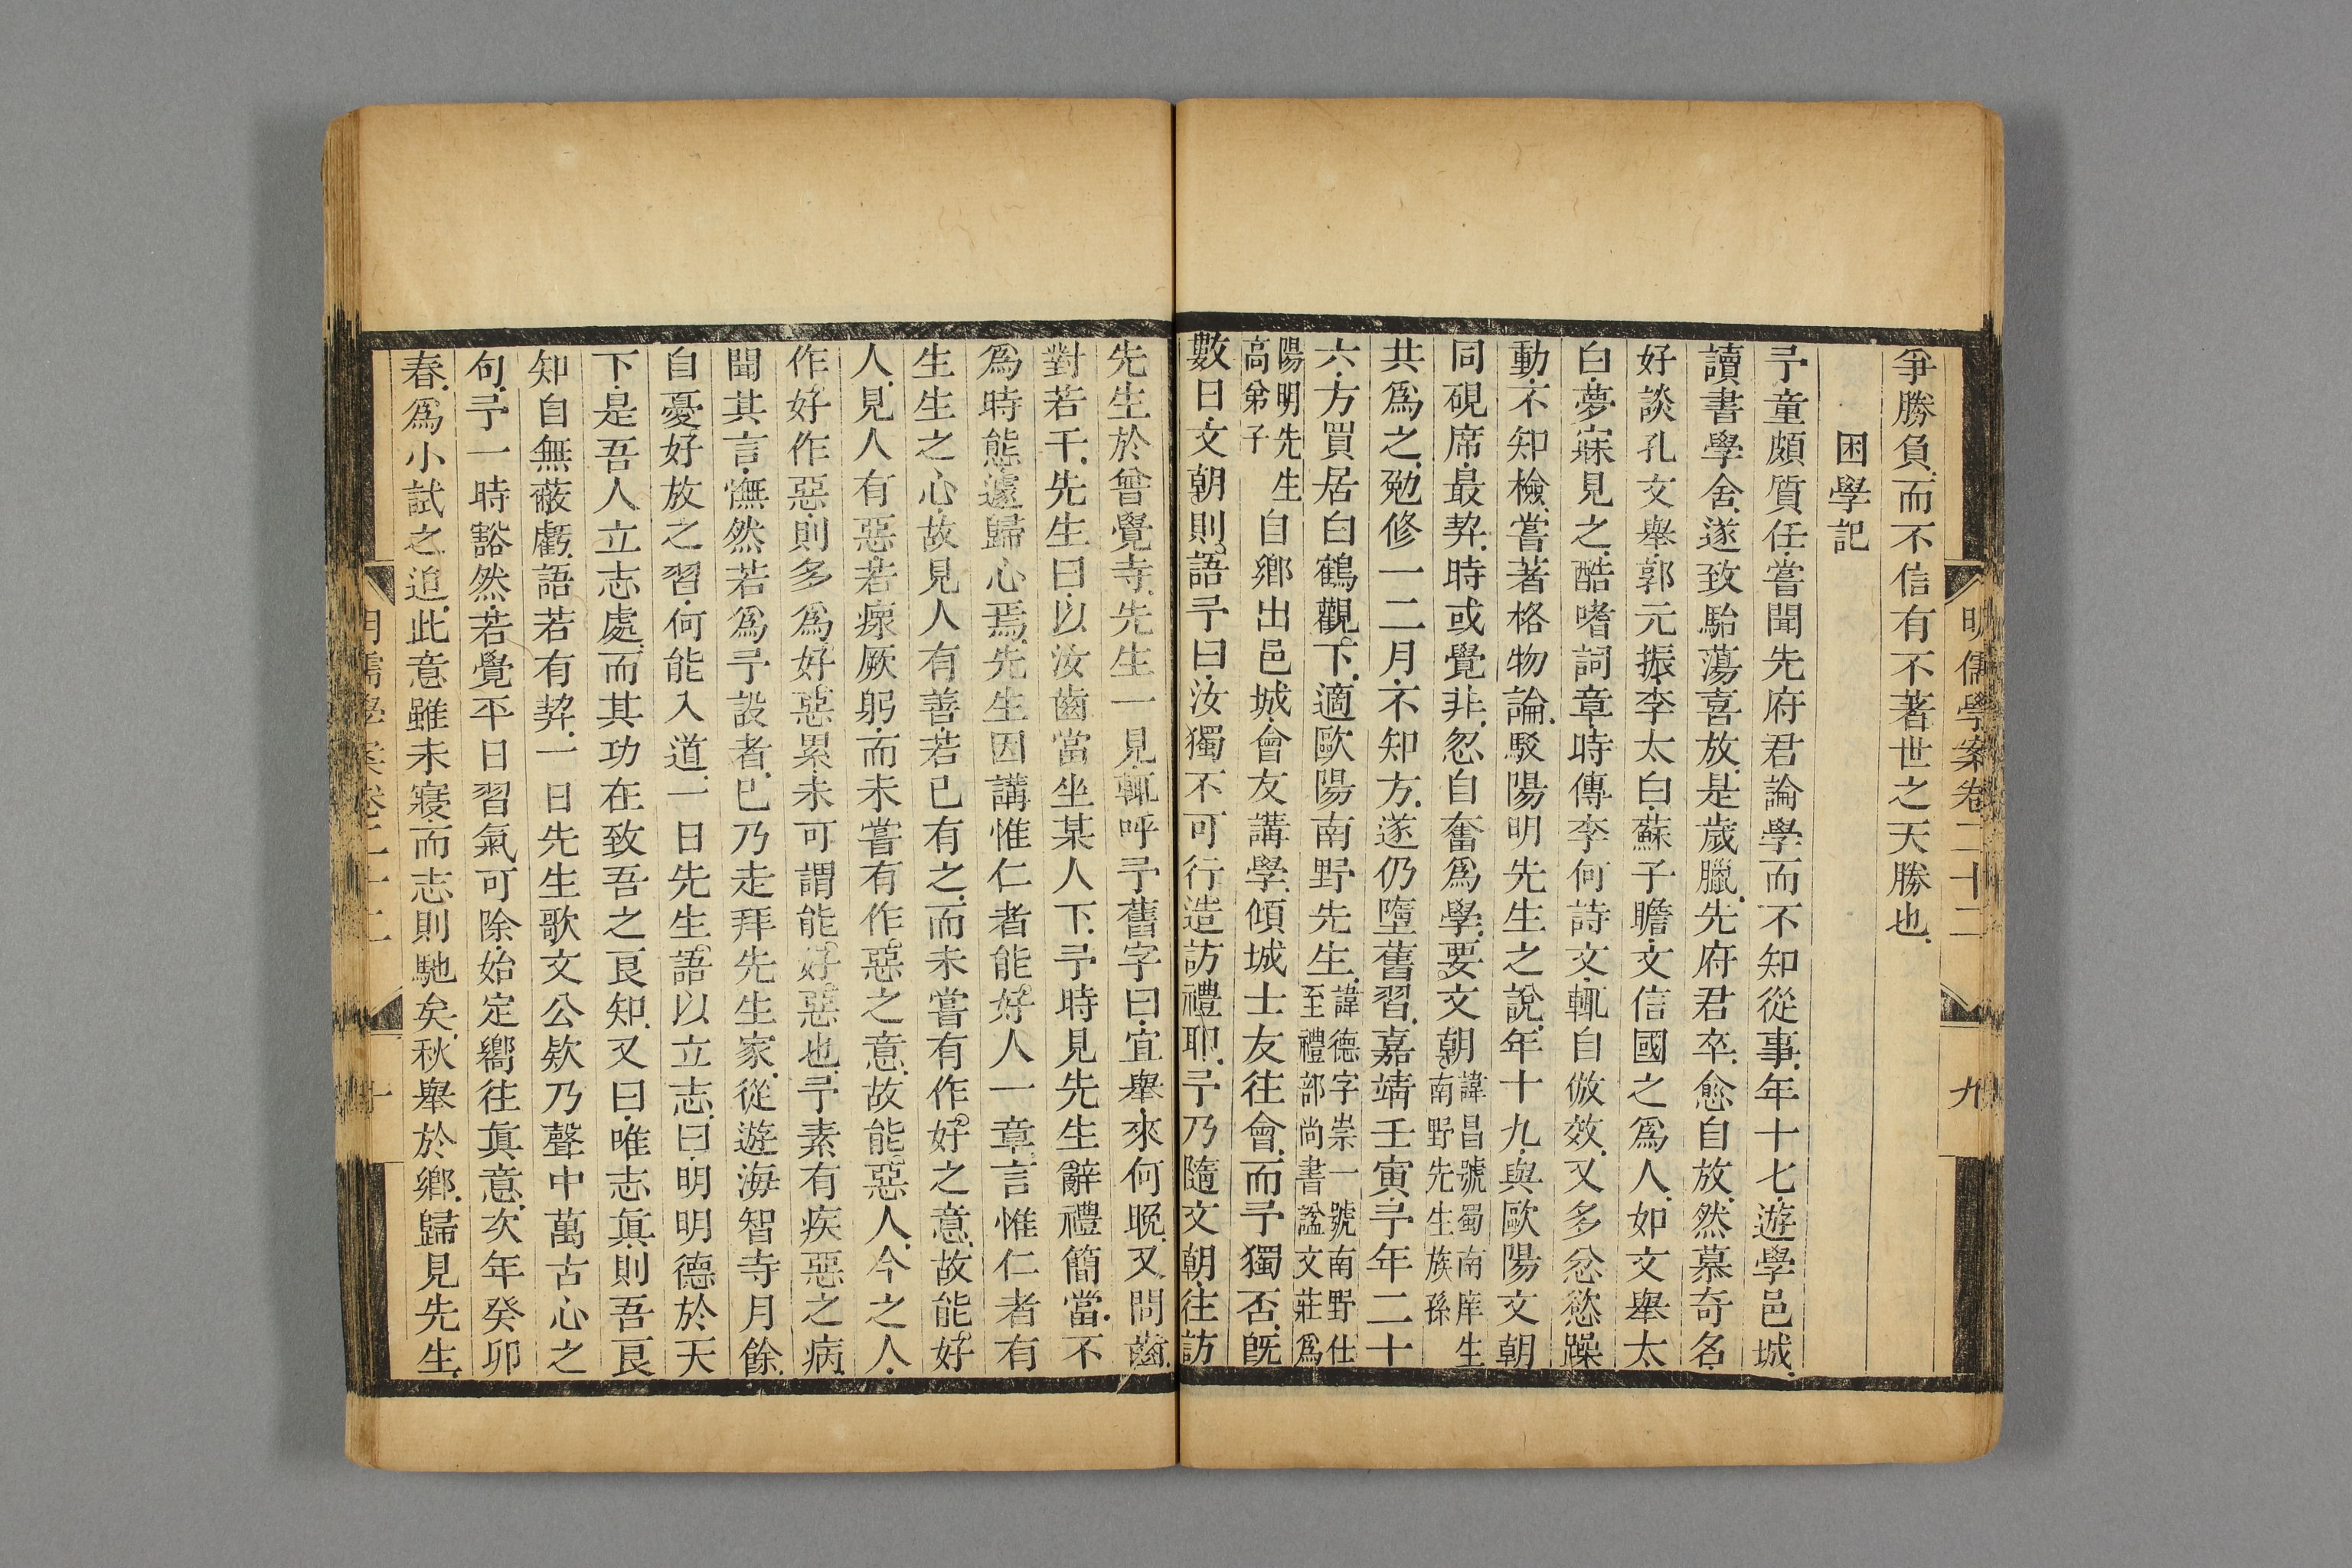 明儒學案卷二十二
九
爭勝負.而不信有不著世之天勝也.
困學記
予童頗質任.嘗聞先府君論學而不知從事.年十七.遊學邑城.
讀書學舍.遂致駘蕩喜放.是歲臘.先府君卒.愈自放.然慕奇名.
好談孔文舉.郭元振.李太白.蘇子瞻.文信國之爲人.如文舉太
白.夢寐見之.酷嗜詞章.時傳李何詩文.輒自倣效.又多忿慾躁
動.不知檢.嘗著格物論.駁陽明先生之說.年十九.與歐陽文朝
同硯席.最契.時或覺非.忽自奮爲學.要文朝諱昌號蜀南庠生南野先生族孫
共爲之.勉修一二月.不知方.遂仍墮舊習.嘉靖壬寅.予年二十
六.方買居白鶴觀下.適歐陽南野先生.諱德字崇一號南野仕至禮部尚書諡文莊爲
陽明先生高弟子自鄉出邑城.會友講學.傾城士友往會.而予獨否.旣
數日.文朝則語予曰.汝獨不可行造訪禮耶.予乃隨文朝往訪
先生於曾覺寺.先生一見.輒呼予舊字曰.宜舉.來何晚.又問齒.
對若干.先生曰.以汝齒當坐某人下.予時見先生辭禮簡當.不
爲時態.遽歸心焉.先生因講惟仁者能好人一章.言惟仁者有
生生之心.故見人有善.若已有之.而未嘗有作好之意.故能好
人.見人有惡.若瘝厥躬.而未嘗有作惡之意.故能惡人.今之人.
作好作惡.則多爲好惡累.未可謂能好惡也.予素有疾惡之病.
聞其言.憮然若爲予設者.已乃走拜先生家.從遊海智寺月餘.
自憂好放之習.何能入道.一日先生語以立志.曰.明明德於天
下.是吾人立志處.而其功在致吾之良知.又曰.唯志眞.則吾良
知自無蔽虧.語若有契.一日先生歌文公欸乃聲中萬古心之
句.予一時豁然.若覺平日習氣可除.始定嚮往眞意.次年癸卯
春.爲小試之迫.此意雖未寢.而志則馳矣.秋舉於鄉.歸見先生.
明儒學案卷二十二
十